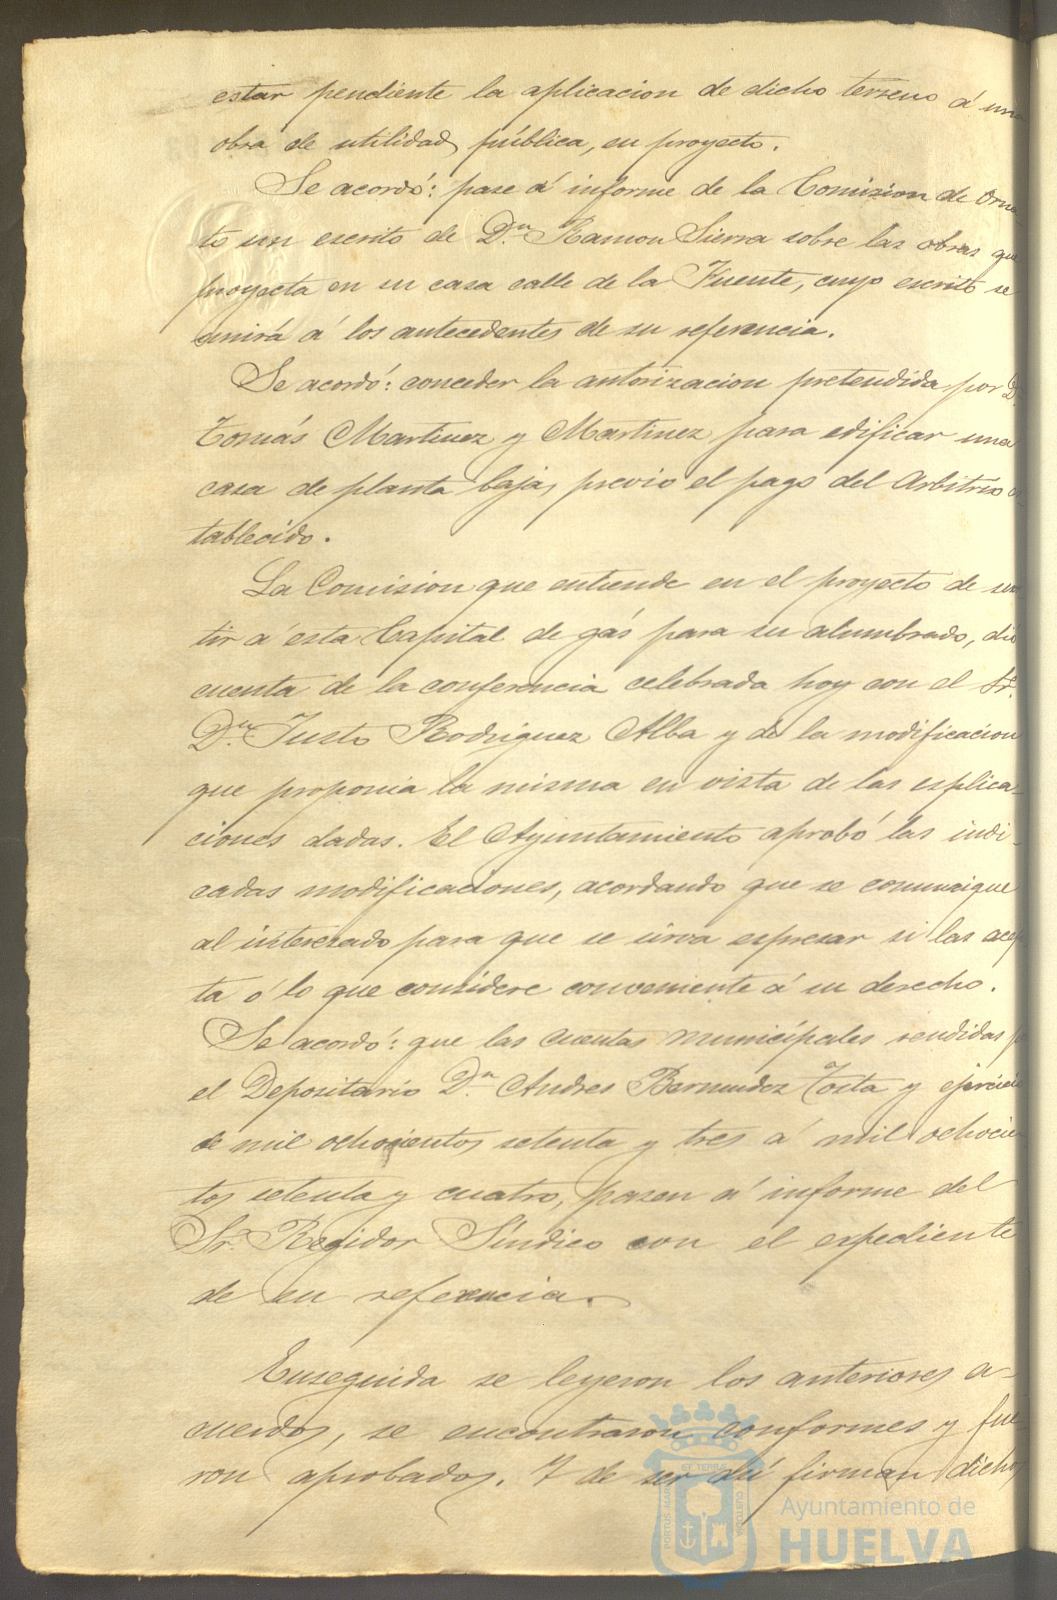 estar pendiente la aplicacion de dicho terreno á una
obra de utilidad pública, en proyecto.
Se acordó: pase á informe de la Comision de Orna
to un escrito de D.n Ramon Sierra sobre las obras que
proyecta en su casa calle de la Fuente, cuyo escrito se
unirá á los antecedentes de su referencia.
Se acordó: conceder la autorizacion pretendida por D.
Tomás Martinez y Martinez para edificar una
casa de planta baja, previo el pago del Arbitrio es
tablecido.
La Comision que entiende en el proyecto de sur
tir á esta Capital de gás para su alumbrado, dió
cuenta de la conferencia celebrada hoy con el Sr.
D.n Justo Rodriguez Alba y de la modificacion
que proponia la misma en vista de las esplica-
ciones dadas. El Ayuntamiento aprobó las indi-
cadas modificaciones, acordando que se comunique
al interesado para que se sirva espresar si las acep
ta ó lo que considere conveniente á su derecho.
Se acordó: que las cuentas municipales rendidas p
el Depositario D.n Andres Bermudez Tosta y ejercicio
de mil ochocientos setenta y tres á mil ochocien
tos setenta y cuatro, pasen á informe del
Sr. Regidor Síndico con el expediente
de su referencia.
Enseguida se leyeron los anteriores a-
cuerdos, se encontraron conformes y fue
ron aprobados. Y de ser así firman dichos
PORTUS MARIS ET TERRÆ CUSTODIA
Ayuntamiento de
HUELVA